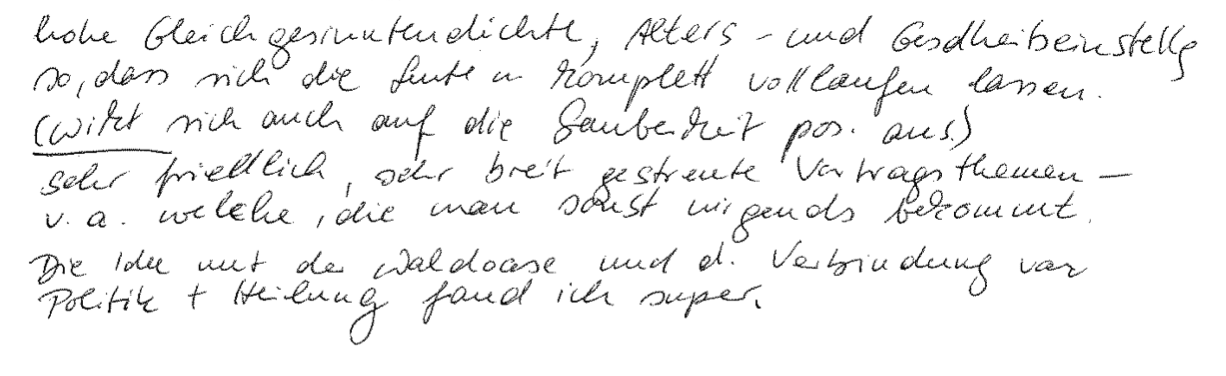 hohe Gleichgesinntendichte, Alters- und Gesdheitseinstellg
so, dass sich die Leute n komplett vollaufen lassen.
(wirkt sich auch auf die Sauberkeit pos. aus)
sehr friedlich, sehr breit gestreute Vortragsthemen –
v. a. welche, die man sonst nirgends bekommt.
Die Idee mit der Waldoase und d. Verbindung von
Politik + Heilung fand ich super.